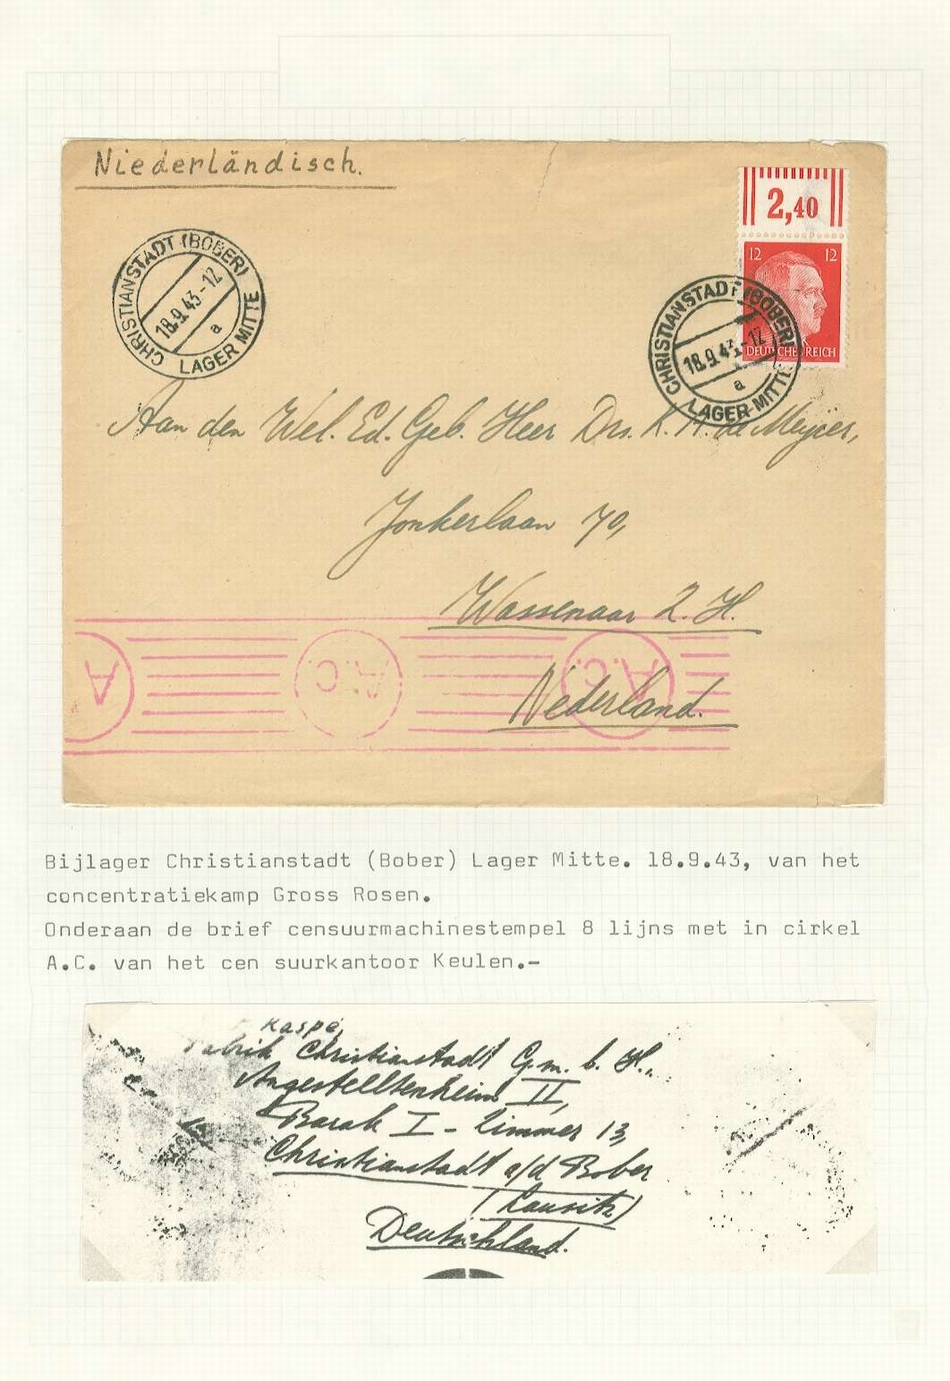 Niederländisch.
2,40
12 12
DEUTSCHES REICH
CHRISTIANSTADT (BOBER)
18.9.43-12
a
LAGER MITTE
CHRISTIANSTADT (BOBER)
18.9.43-12
a
LAGER MITTE
Aan den Wel. Ed. Geb. Heer Drs. K. de Meijier,
Jonkerlaan 70,
Wassenaar Z. H.
Nederland.
A
A.C.
A.C.
Bijlager Christianstadt (Bober) Lager Mitte. 18.9.43, van het
concentratiekamp Gross Rosen.
Onderaan de brief censuurmachinestempel 8 lijns met in cirkel
A.C. van het cen suurkantoor Keulen.-
Kaspé,
Fabrik Christianstadt G.m.b.H.,
Angestelltenheim II,
Barak I - Zimmer 13,
Christianstadt a/d Bober
(Lausitz)
Deutschland.